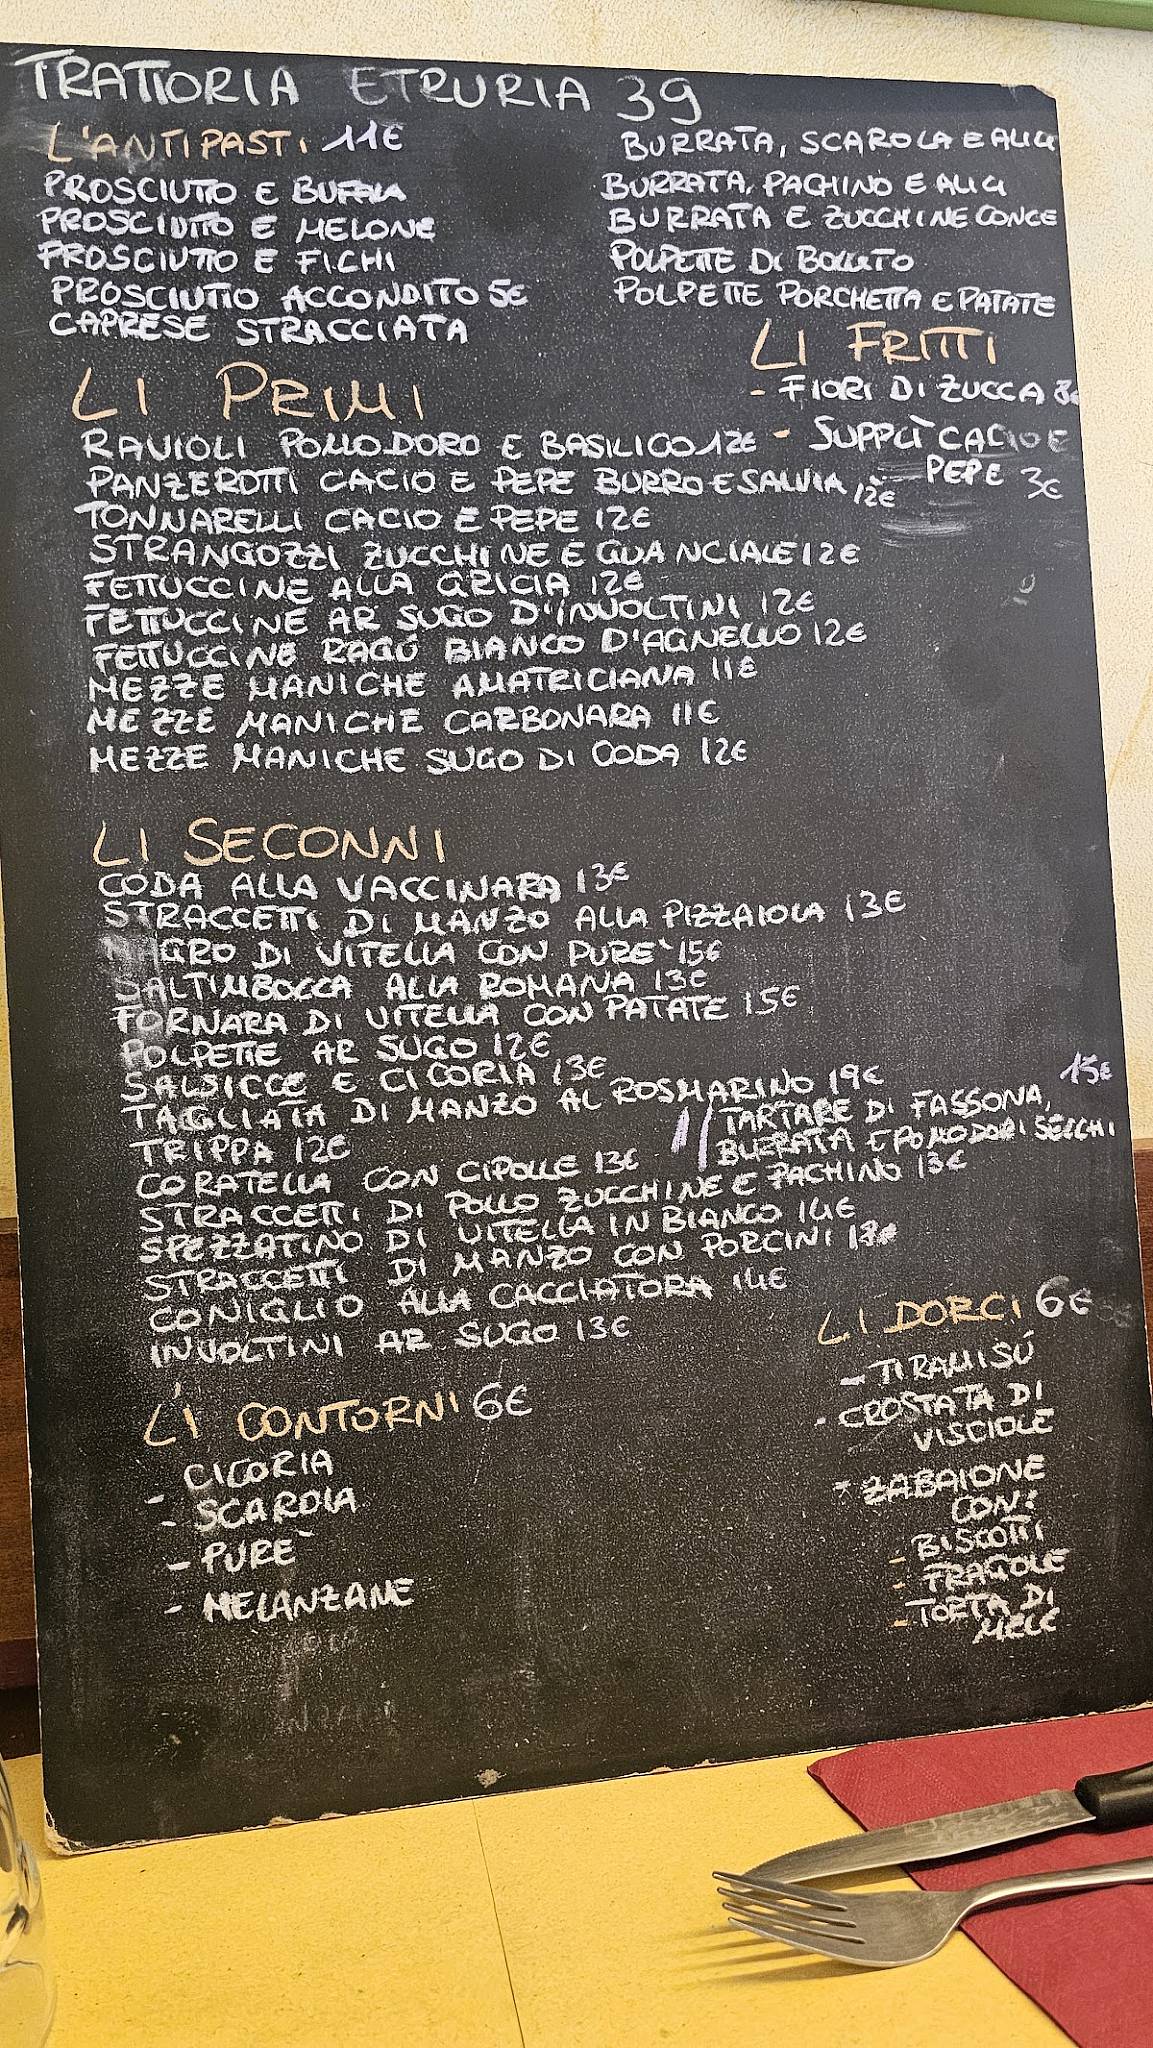 TRATTORIA ETRURIA 39
L'ANTIPASTI 11€
PROSCIUTTO E BUFALA
PROSCIUTTO E MELONE
PROSCIUTTO E FICHI
PROSCIUTTO ACCONDITO 5€
CAPRESE STRACCIATA
BURRATA, SCAROLA E ALICI
BURRATA, PACHINO E ALICI
BURRATA E ZUCCHINE CONCE
POLPETTE DI BOLLITO
POLPETTE PORCHETTA E PATATE
LI FRITTI
- FIORI DI ZUCCA 3€
- SUPPLÌ CACIO E
PEPE 3€
LI PRIMI
RAVIOLI POMODORO E BASILICO 12€
PANZEROTTI CACIO E PEPE BURRO E SALVIA 12€
TONNARELLI CACIO E PEPE 12€
STRANGOZZI ZUCCHINE E GUANCIALE 12€
FETTUCCINE ALLA GRICIA 12€
FETTUCCINE AR SUGO D'INVOLTINI 12€
FETTUCCINE RAGÚ BIANCO D'AGNELLO 12€
MEZZE MANICHE AMATRICIANA 11€
MEZZE MANICHE CARBONARA 11€
MEZZE MANICHE SUGO DI CODA 12€
LI SECONNI
CODA ALLA VACCINARA 13€
STRACCETTI DI MANZO ALLA PIZZAIOLA 13€
MAGRO DI VITELLA CON PURE' 15€
SALTIMBOCCA ALLA ROMANA 13€
FORNARA DI VITELLA CON PATATE 15€
POLPETTE AR SUGO 12€
SALSICCE E CICORIA 13€
TAGLIATA DI MANZO AL ROSMARINO 19€
TRIPPA 12€
CORATELLA CON CIPOLLE 13€
// TARTARE DI FASSONA, 15€
BURRATA E POMODORI SECCHI
STRACCETTI DI POLLO ZUCCHINE E PACHINO 13€
SPEZZATINO DI VITELLA IN BIANCO 14€
STRACCETTI DI MANZO CON PORCINI
CONIGLIO ALLA CACCIATORA 14€
INVOLTINI AR SUGO 13€
LI CONTORNI 6€
- CICORIA
- SCAROLA
- PURÈ
- MELANZANE
LI DORCI 6€
- TIRAMISÚ
- CROSTATA DI
VISCIOLE
- ZABAIONE
CON:
- BISCOTTI
- FRAGOLE
- TORTA DI
MELE